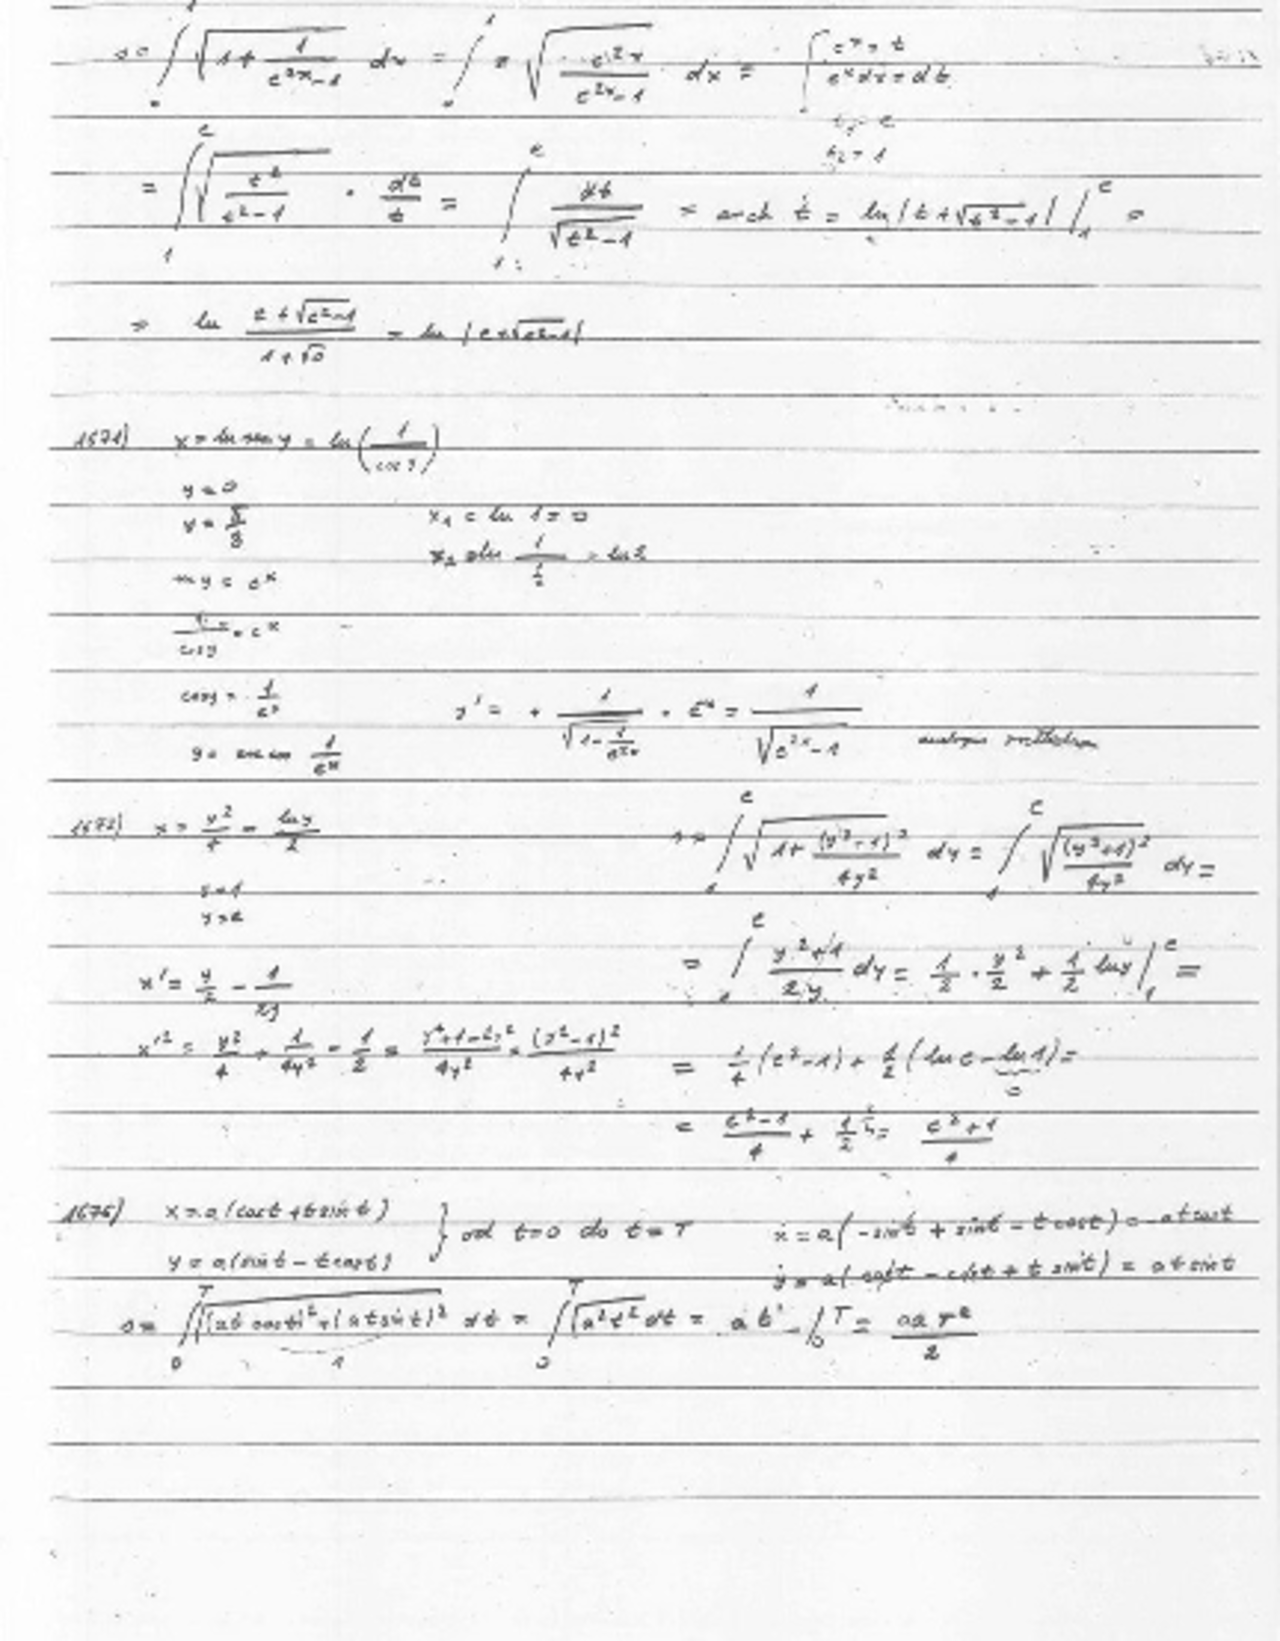 s = ∫₀¹ √(1 + 1/(e^(2x) - 1)) dx = ∫₀¹ √(e^(2x)/(e^(2x) - 1)) dx = | e^x = t
e^x dx = dt
t₂ = e
t₂ = 1
= ∫₁^e √(t²/(t² - 1)) · dt/t = ∫₁^e dt/√(t² - 1) = arch t = ln|t + √(t² - 1)| |₁^e =
= ln (e + √(e² - 1))/(1 + √0) = ln |e + √(e² - 1)|
1671) x = ln sec y = ln(1/cos y)
y = 0
y = π/3 x₁ = ln 1 = 0
x₂ = ln 1/(1/2) = ln 2
sec y = e^x
1/cos y = e^x
cos y = 1/e^x y' = + 1/√(1 - 1/e^(2x)) · e^-x = 1/√(e^(2x) - 1)
y = arc cos 1/e^x
1672) x = y²/4 - ln y/2 s = ∫₁^e √(1 + (y² - 1)²/4y²) dy = ∫₁^e √((y² + 1)²/4y²) dy =
y = 1
y = e
= ∫₁^e (y² + 1)/2y dy = 1/2 · y²/2 + 1/2 ln y |₁^e =
x' = y/2 - 1/2y
x'² = y²/4 + 1/4y² - 1/2 = (y⁴ + 1 - 2y²)/4y² = (y² - 1)²/4y² = 1/4 (e² - 1) + 1/2 (ln e - ln 1) =
0
= (e² - 1)/4 + 1/2 = (e² + 1)/4
1676) x = a(cos t + t sin t)
y = a(sin t - t cos t) } od t=0 do t=T
ẋ = a(-sin t + sin t - t cos t) = -at cos t
ẏ = a(cos t - cos t + t sin t) = at sin t
s = ∫₀^T √((at cos t)² + (at sin t)²) dt = ∫₀^T √(a²t²) dt = at² |₀^T = aT²/2
1